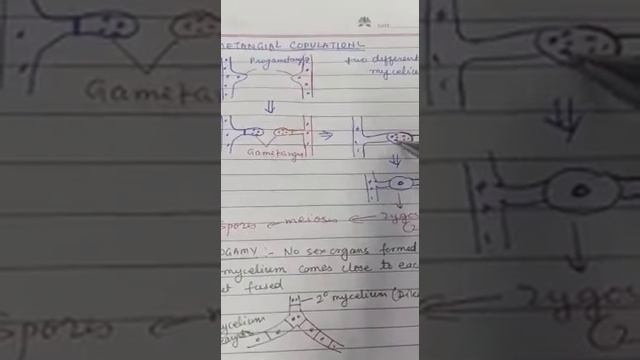 ETANGIAL COPULATION
Progametangia
two different
mycelium
Gametangia
Spores ← meiosis ← zygos
(2
OGAMY :- No sex organs formed
mycelium comes close to eac
et fused
2° mycelium (Dika
mycelium